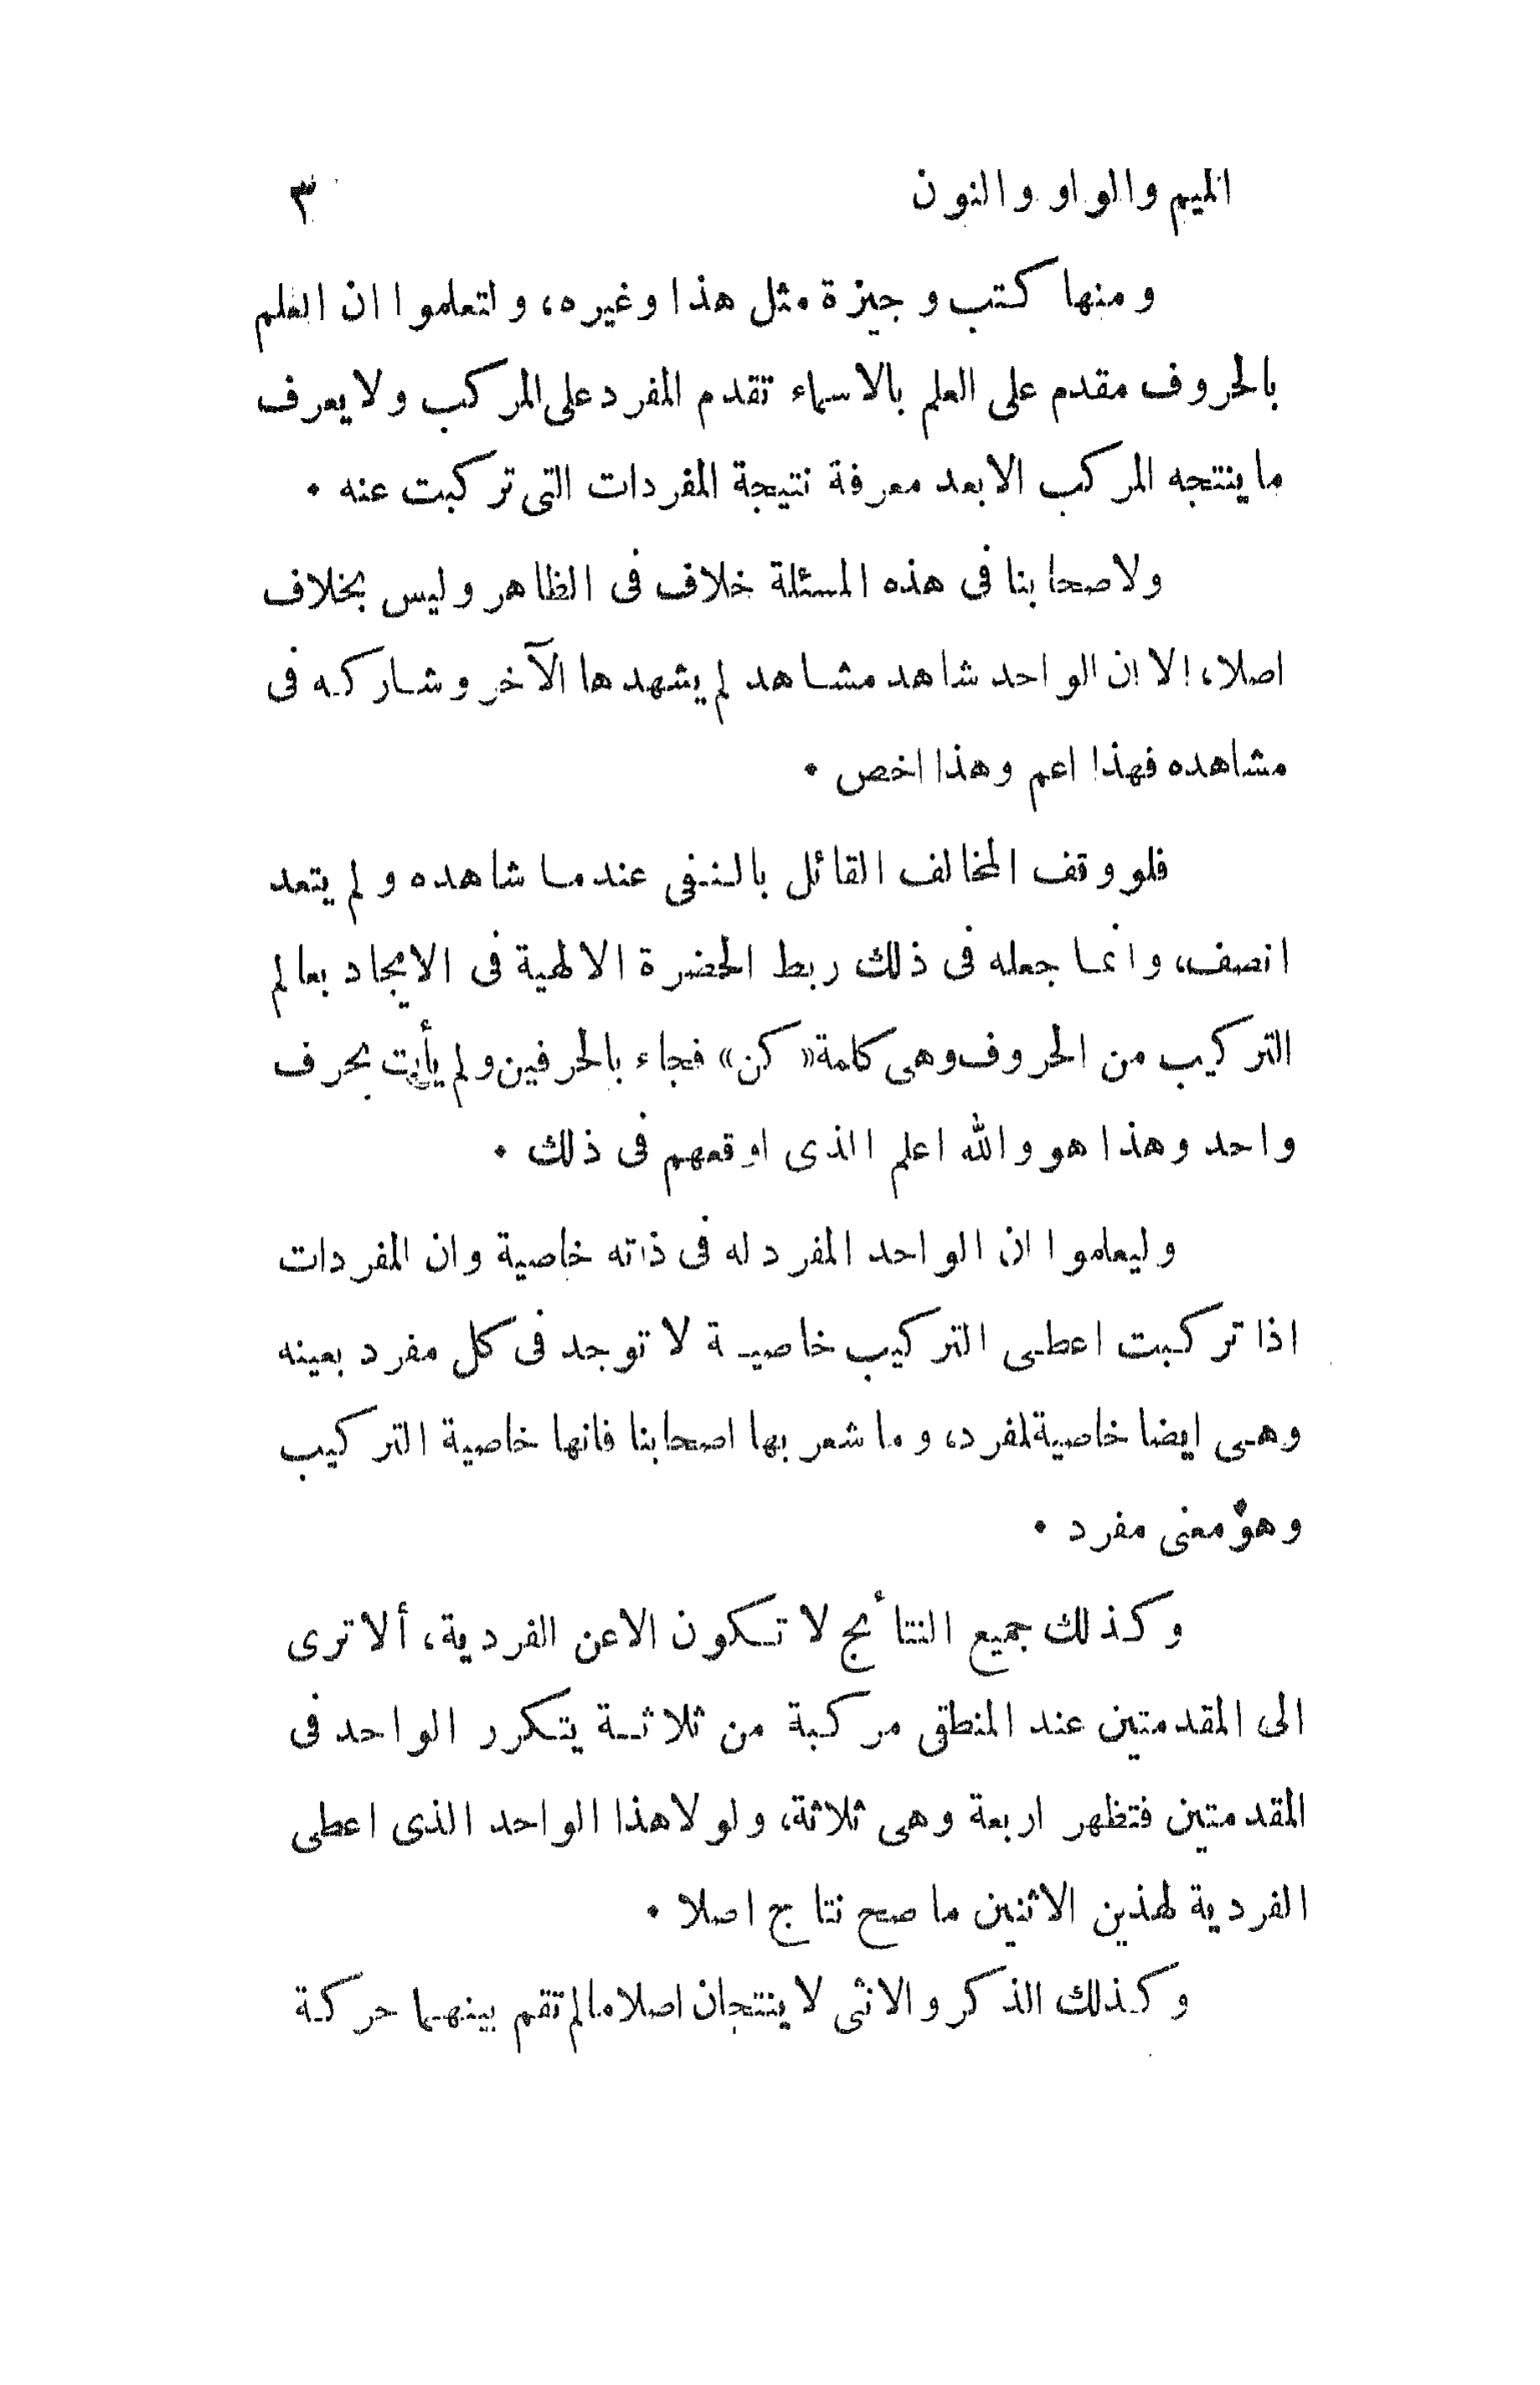 الميم والواو والنون ٣
ومنها كتب وجيزة مثل هذا وغيره، ولتعلموا ان العلم
بالحروف مقدم على العلم بالاسماء تقدم المفرد على المركب ولا يعرف
ما ينتجه المركب الا بعد معرفة نتيجة المفردات التى تركبت عنه .
ولاصحابنا فى هذه المسئلة خلاف فى الظاهر وليس بخلاف
اصلا، الا ان الواحد شاهد مشاهد لم يشهدها الآخر وشاركه فى
مشاهده فهذا اعم وهذا اخص .
فلو وقف المخالف القائل بالنفى عند ما شاهده ولم يتعد
انصف، وانما جعله فى ذلك ربط الحضرة الالهية فى الايجاد بعالم
التركيب من الحروف وهى كلمة « كن » فجاء بالحرفين ولم يأت بحرف
واحد وهذا هو والله اعلم الذى اوقعهم فى ذلك .
وليعلموا ان الواحد المفرد له فى ذاته خاصية وان المفردات
اذا تركبت اعطى التركيب خاصية لا توجد فى كل مفرد بعينه
وهى ايضا خاصية لمفرد، وما شعر بها اصحابنا فانها خاصية التركيب
وهو معنى مفرد .
وكذلك جميع النتائج لا تكون الا عن الفردية، ألا ترى
الى المقدمتين عند المنطقى مركبة من ثلاثة يتكرر الواحد فى
المقدمتين فتظهر اربعة وهى ثلاثة، ولولا هذا الواحد الذى اعطى
الفردية لهذين الاثنين ما صح نتاج اصلا .
وكذلك الذكر والانثى لا ينتجان اصلا مالم تقم بينهما حركة